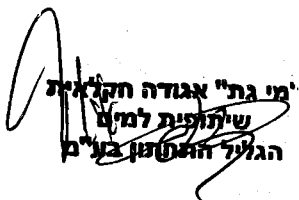 "מי גת" אגודה חקלאית
שיתופית למים
הגליל התחתון בע"מ